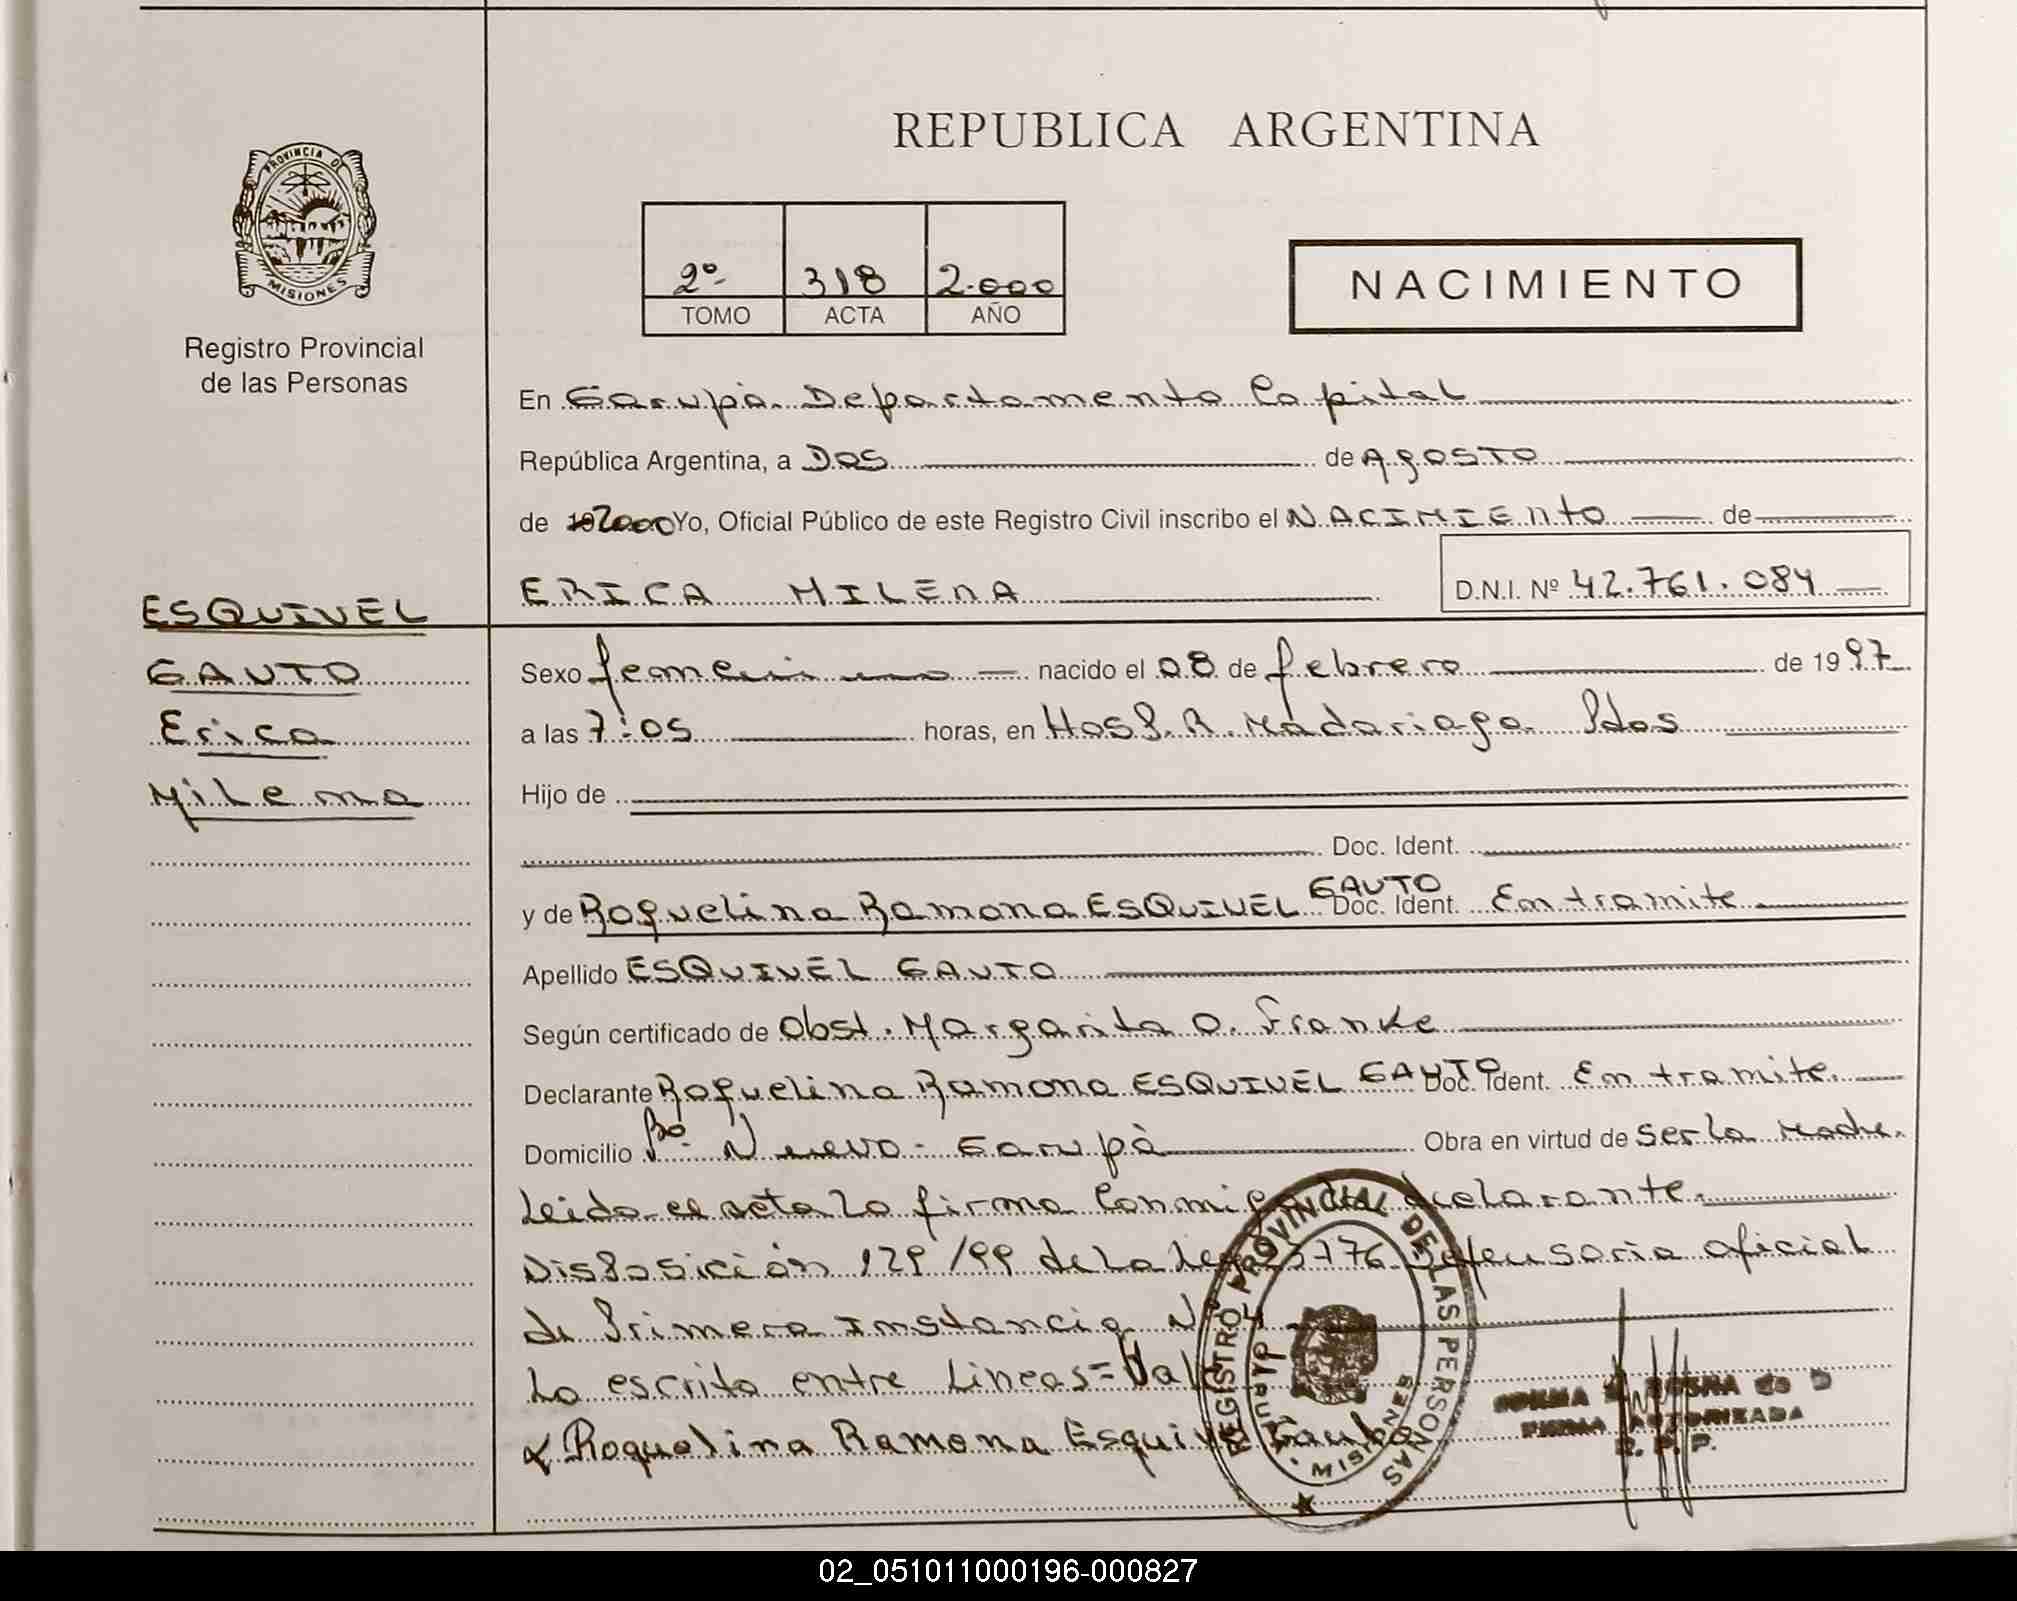 REPUBLICA ARGENTINA
PROVINCIA DE
MISIONES
Registro Provincial
de las Personas
2º 318 2.000
TOMO ACTA AÑO
NACIMIENTO
En Garupá Departamento Capital
República Argentina, a Dos de Agosto
de 2000 Yo, Oficial Público de este Registro Civil inscribo el NACIMIENTO de
ERICA MILENA D.N.I. Nº 42.761.084
ESQUIVEL
GAUTO
Erica
Milena
Sexo femenino nacido el 08 de febrero de 1997
a las 7:05 horas, en Hosp. R. Madariaga Pdas
Hijo de
Doc. Ident.
y de Roquelina Ramona ESQUIVEL GAUTO Doc. Ident. En tramite
Apellido ESQUIVEL GAUTO
Según certificado de Obst. Margarita O. Franke
Declarante Roquelina Ramona ESQUIVEL GAUTO Doc. Ident. En tramite.
Domicilio Bo. Nuevo - Garupá Obra en virtud de ser la Madre.
Leida el acta la firma Conmigo la declarante.
Disposición 129/99 de la Ley 3776 Defensoria oficial
de Primera instancia Nº
Lo escrito entre Lineas = Vale
Roquelina Ramona Esquivel Gauto
REGISTRO PROVINCIAL DE LAS PERSONAS
Garupá
MISIONES
NORMA
FIRMA AUTORIZADA
R. P. P.
02_051011000196-000827